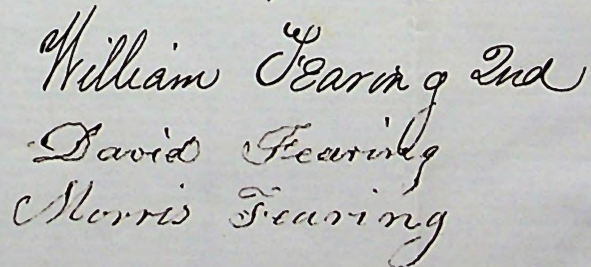 William Fearing 2nd
David Fearing
Morris Fearing